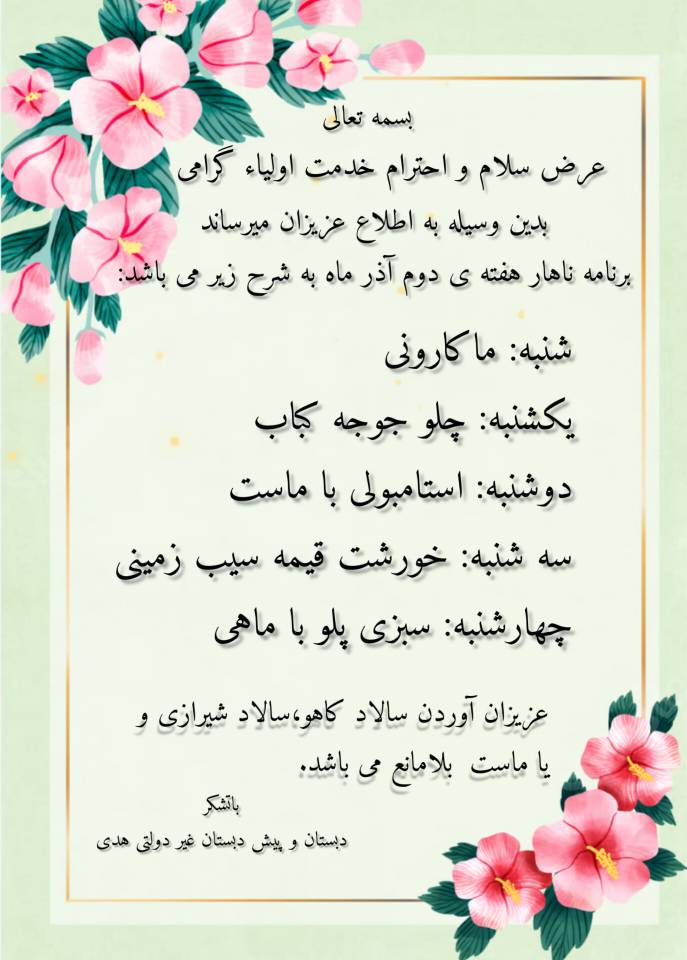 بسمه تعالی
عرض سلام و احترام خدمت اولیاء گرامی
بدین وسیله به اطلاع عزیزان میرساند
برنامه ناهار هفته ی دوم آذر ماه به شرح زیر می باشد:
شنبه: ماکارونی
یکشنبه: چلو جوجه کباب
دوشنبه: استامبولی با ماست
سه شنبه: خورشت قیمه سیب زمینی
چهارشنبه: سبزی پلو با ماهی
عزیزان آوردن سالاد کاهو،سالاد شیرازی و
یا ماست بلامانع می باشد.
باتشکر
دبستان و پیش دبستان غیر دولتی هدی